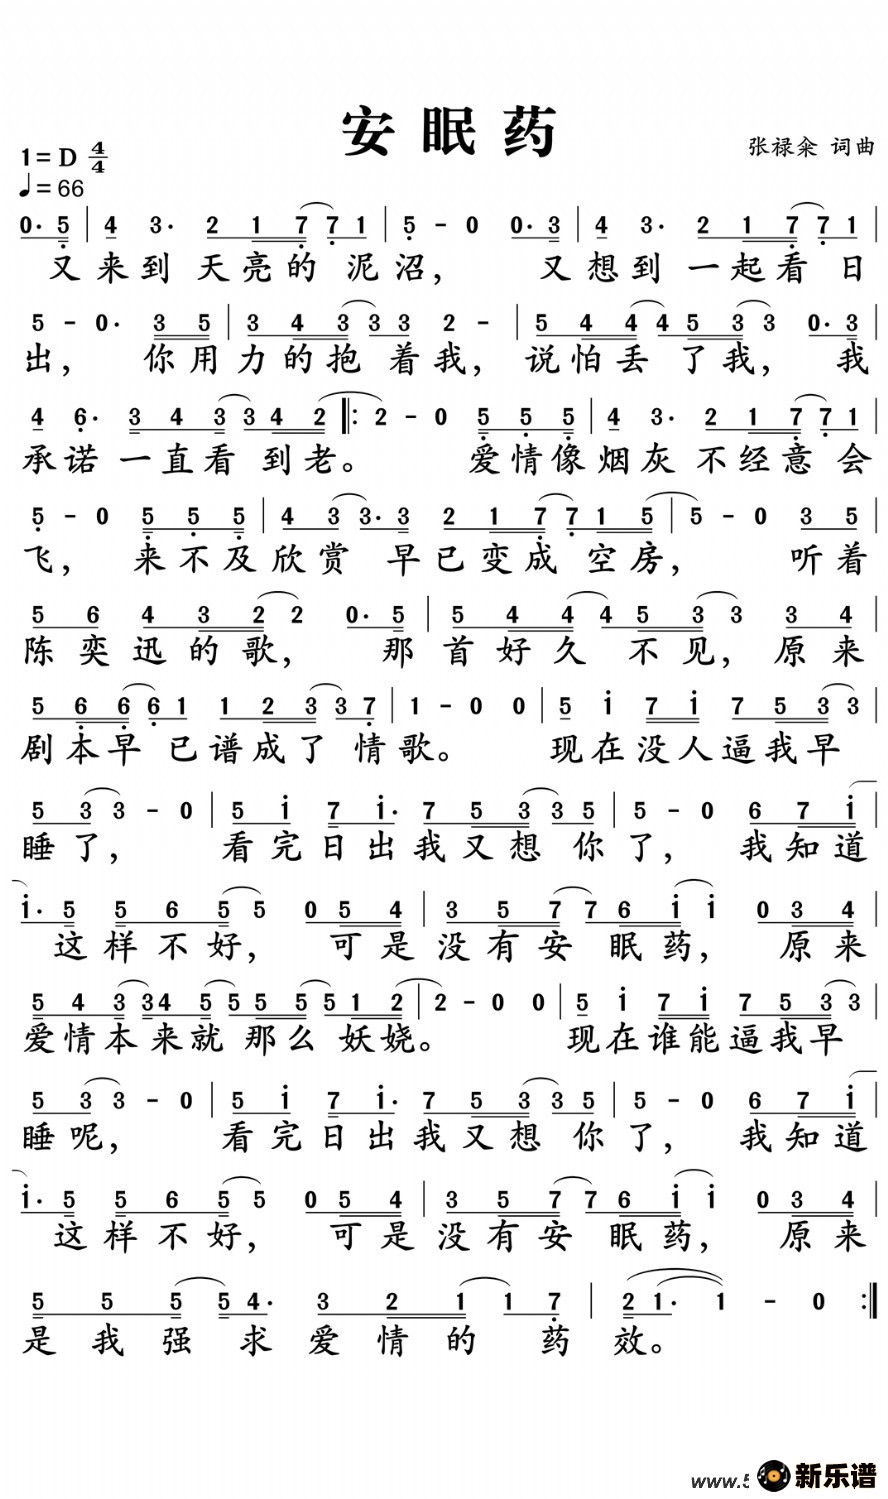 安眠药
1=D 4/4
♩=66
张禄籴 词曲
0· 5 | 4 3· 2 1 7 7 1 | 5 - 0 0· 3 | 4 3· 2 1 7 7 1 |
又来到天亮的泥沼， 又想到一起看日
5 - 0· 3 5 | 3 4 3 3 3 2 - | 5 4 4 4 5 3 3 0· 3 |
出， 你用力的抱着我， 说怕丢了我， 我
4 6· 3 4 3 3 4 2 ‖: 2 - 0 5 5 5 | 4 3· 2 1 7 7 1 |
承诺一直看到老。 爱情像烟灰不经意会
5 - 0 5 5 5 | 4 3 3· 3 2 1 7 7 1 5 | 5 - 0 3 5 |
飞， 来不及欣赏早已变成空房， 听着
5 6 4 3 2 2 0· 5 | 5 4 4 4 5 3 3 3 4 |
陈奕迅的歌， 那首好久不见， 原来
5 6 6 6 1 1 2 3 3 7 | 1 - 0 0 | 5 i 7 i 7 5 3 3 |
剧本早已谱成了情歌。 现在没人逼我早
5 3 3 - 0 | 5 i 7 i· 7 5 3 3 5 | 5 - 0 6 7 i |
睡了， 看完日出我又想你了， 我知道
i· 5 5 6 5 5 0 5 4 | 3 5 7 7 6 i i 0 3 4 |
这样不好， 可是没有安眠药， 原来
5 4 3 3 4 5 5 5 5 5 1 2 | 2 - 0 0 | 5 i 7 i 7 5 3 3 |
爱情本来就那么妖娆。 现在谁能逼我早
5 3 3 - 0 | 5 i 7 i· 7 5 3 3 5 | 5 - 0 6 7 i |
睡呢， 看完日出我又想你了， 我知道
i· 5 5 6 5 5 0 5 4 | 3 5 7 7 6 i i 0 3 4 |
这样不好， 可是没有安眠药， 原来
5 5 5 5 4· 3 2 1 1 7 | 2 1· 1 - 0 :‖
是我强求爱情的药效。
www.5
新乐谱